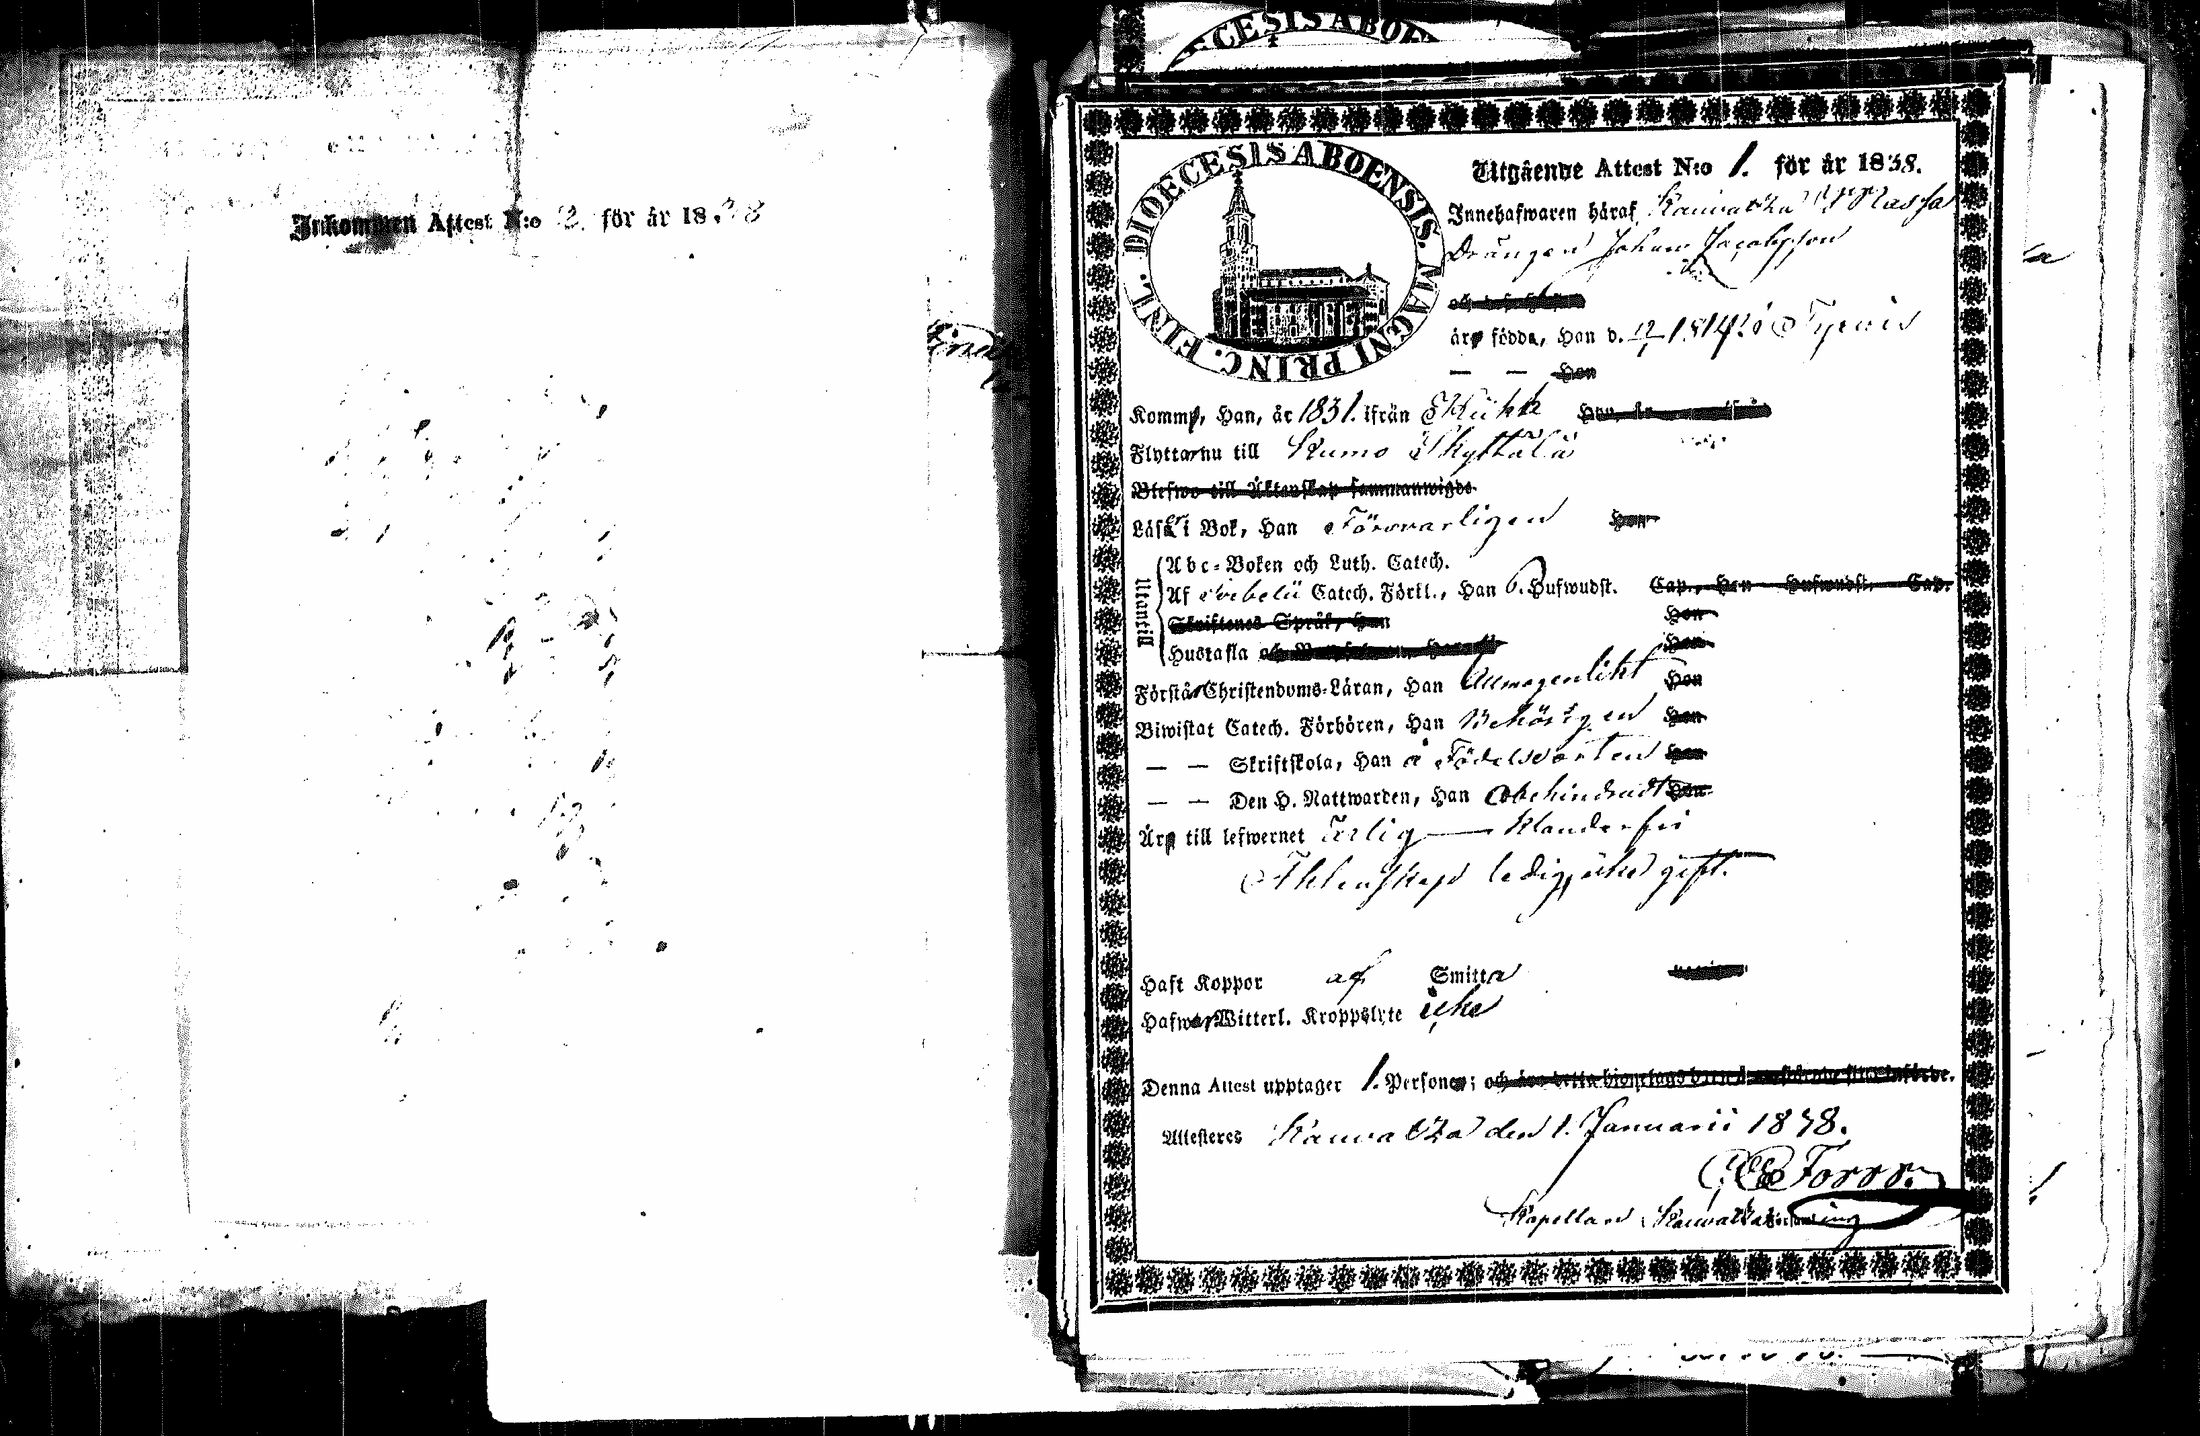 Inkommen Attest N:o 2. för år 1838
DIOECESIS ABOENSIS. MAGNI PRINC. FINL.
Utgående Attest N:o 1. för år 1838.
Innehafwaren häraf Kauvatza
Drängen Johan Jacobsson
är födde, Han d. 1814. i Tyrvis
— — Hon
Komm, Han, år 1831. ifrån
Flyttar nu till Kumo Skyttälä
Blefwo till Äktenskap sammanwigde
Läser i Bok, Han Försvarligen Hon
Utantill
Abc-Boken och Luth. Catech.
Af Svebelii Catech. Förkl., Han 6. Hufwudst. Cap., Hon Hufwudst. Cap.
Skriftenes Språk, Han Hon
Hustafla Hon
Förstår Christendoms-Läran, Han Allmogenlikt Hon
Biwistat Catech. Förhören, Han Behörigen Hon
— — Skriftskola, Han å Födelseorten Hon
— — Den H. Nattwarden, Han Obehindradt Hon
Är till lefwernet Ärlig — Klanderfri
Ektenskap ledig, icke gift.
Haft Koppor af Smitta
Hafwer Witterl. Kroppslyte icke
Denna Attest upptager 1. Person;
Attesteres Kauvatza den 1. Januarii 1838.
Kapellan